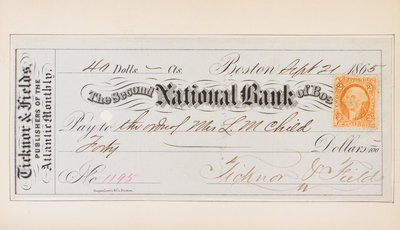 Ticknor & Fields,
PUBLISHERS OF THE
Atlantic Monthly.
40 Dolls. ~ Cts. Boston Sept 21 1865
The Second National Bank of Bos
Pay to the order of Mrs L. M Child
Forty Dollars 100
No 1195 Ticknor & Fields